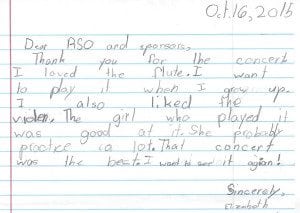 Oct.16, 2015
Dear ASO and sponsors,
Thank you for the concert
I loved the flute. I want
to play it when I grow up.
I also liked the
violen. The girl who played it
was good at it. She probably
practice a lot. That concert
was the best. I want to see it agian!
Sincerely,
Elizabeth